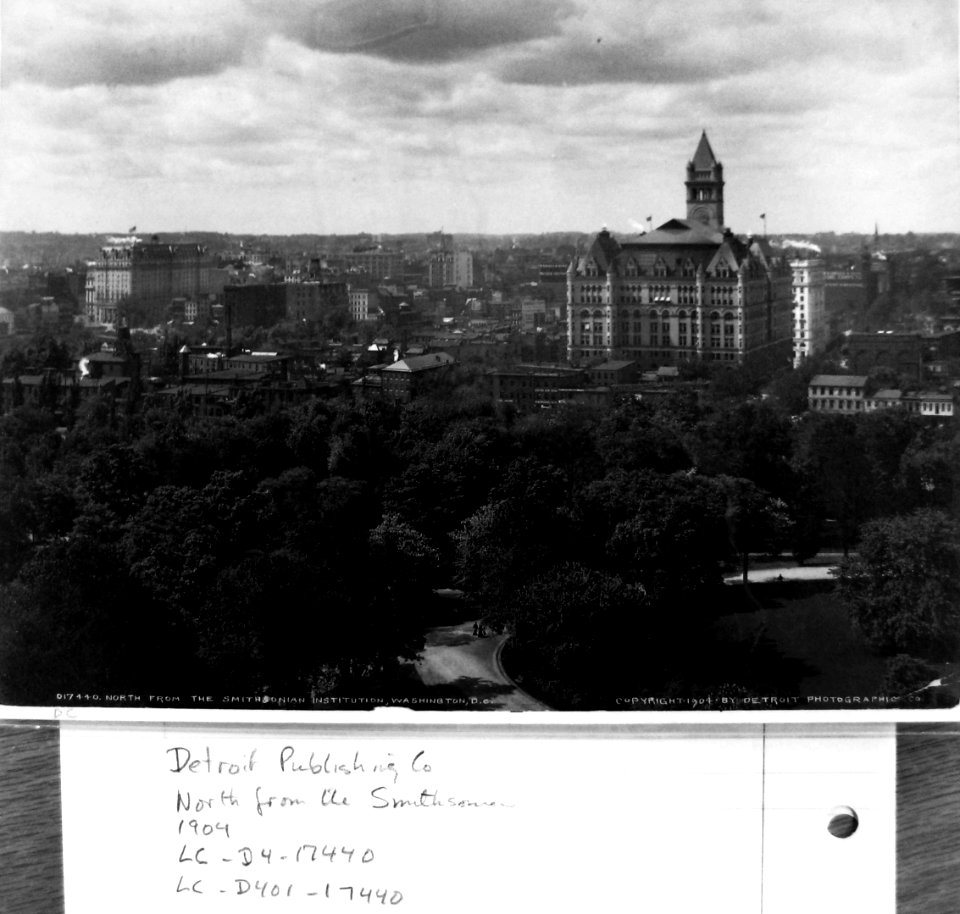 017440. NORTH FROM THE SMITHSONIAN INSTITUTION, WASHINGTON, D.C. COPYRIGHT 1904 BY DETROIT PHOTOGRAPHIC CO.
DC
Detroit Publishing Co
North from the Smithsonian
1904
LC - D4 - 17440
LC - D401 - 17440